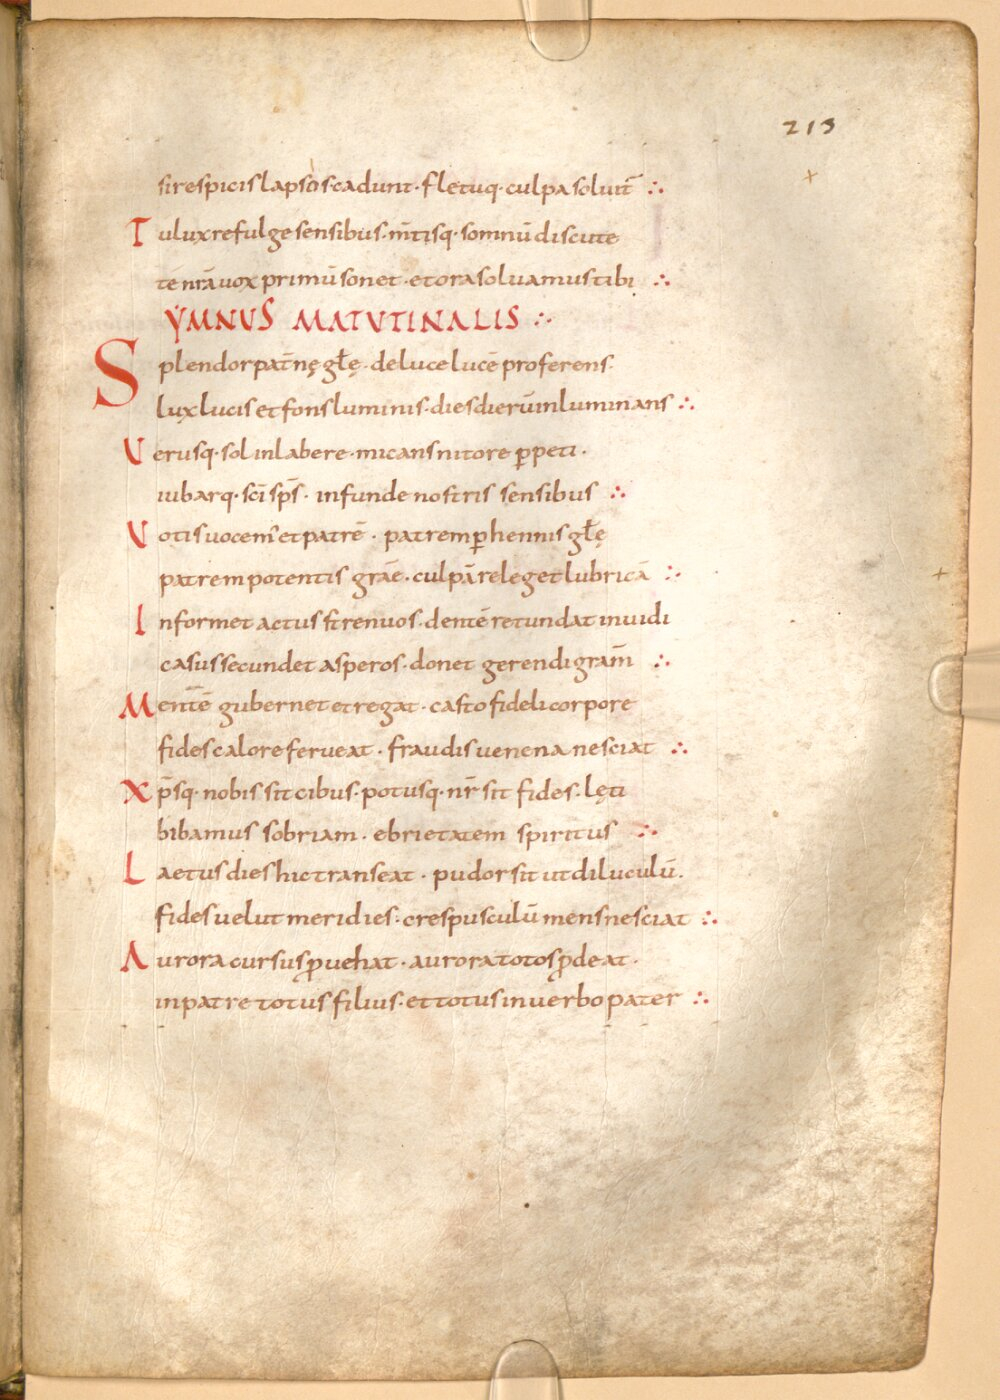 213
si respicis lapsos cadunt · fletuq· culpa soluit̄ ∴
Tu lux refulge sensibus · m̄tisq· somnū discute
te nr̄a uox primū sonet · et ora soluamus tibi ∴
YMNUS MATUTINALIS ∴
Splendor pat̄nę gl̄ę · de luce lucē proferens·
lux lucis et fons luminis · dies dierū inluminans ∴
Uerusq· sol inlabere · micans nitore p̄peti ·
iubarq· sc̄i sp̄s · infunde nostris sensibus ∴
Uotis uocem' et patrē · patrem p̄hennis gl̄ę
patrem potentis grāe · culpā releget lubricā ∴
Informet actus strenuos · dentē retundat inuidi
casus secundet asperos · donet gerendi gram̄ ∴
Mentē gubernet et regat · casto fideli corpore
fides calore ferueat · fraudis uenena nesciat ∴
Xp̄sq· nobis sit cibus · potusq· nr̄ sit fides · lęti
bibamus sobriam · ebrietatem spiritus ∴
Laetus dies hic transeat · pudor sit ut diluculū ·
fides uelut meridies · crespusculū mens nesciat ∴
Aurora cursus ꝓuehat · aurora totos ꝓdeat ·
in patre totus filius · et totus in uerbo pater ∴